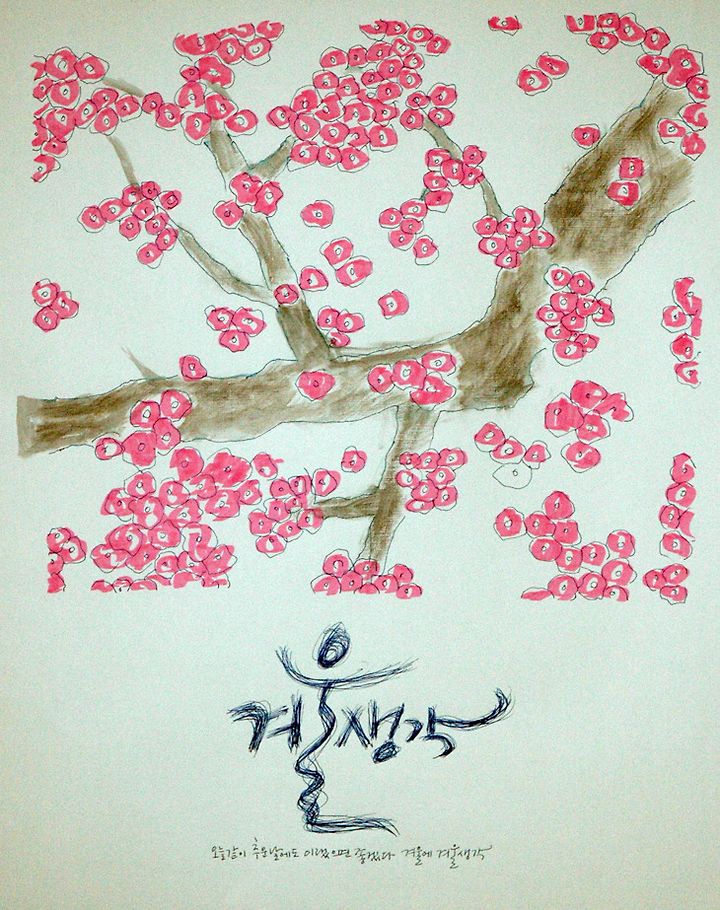 겨울생각
오늘같이 추운날에도 이랬으면 좋겠다 겨울에 겨울생각